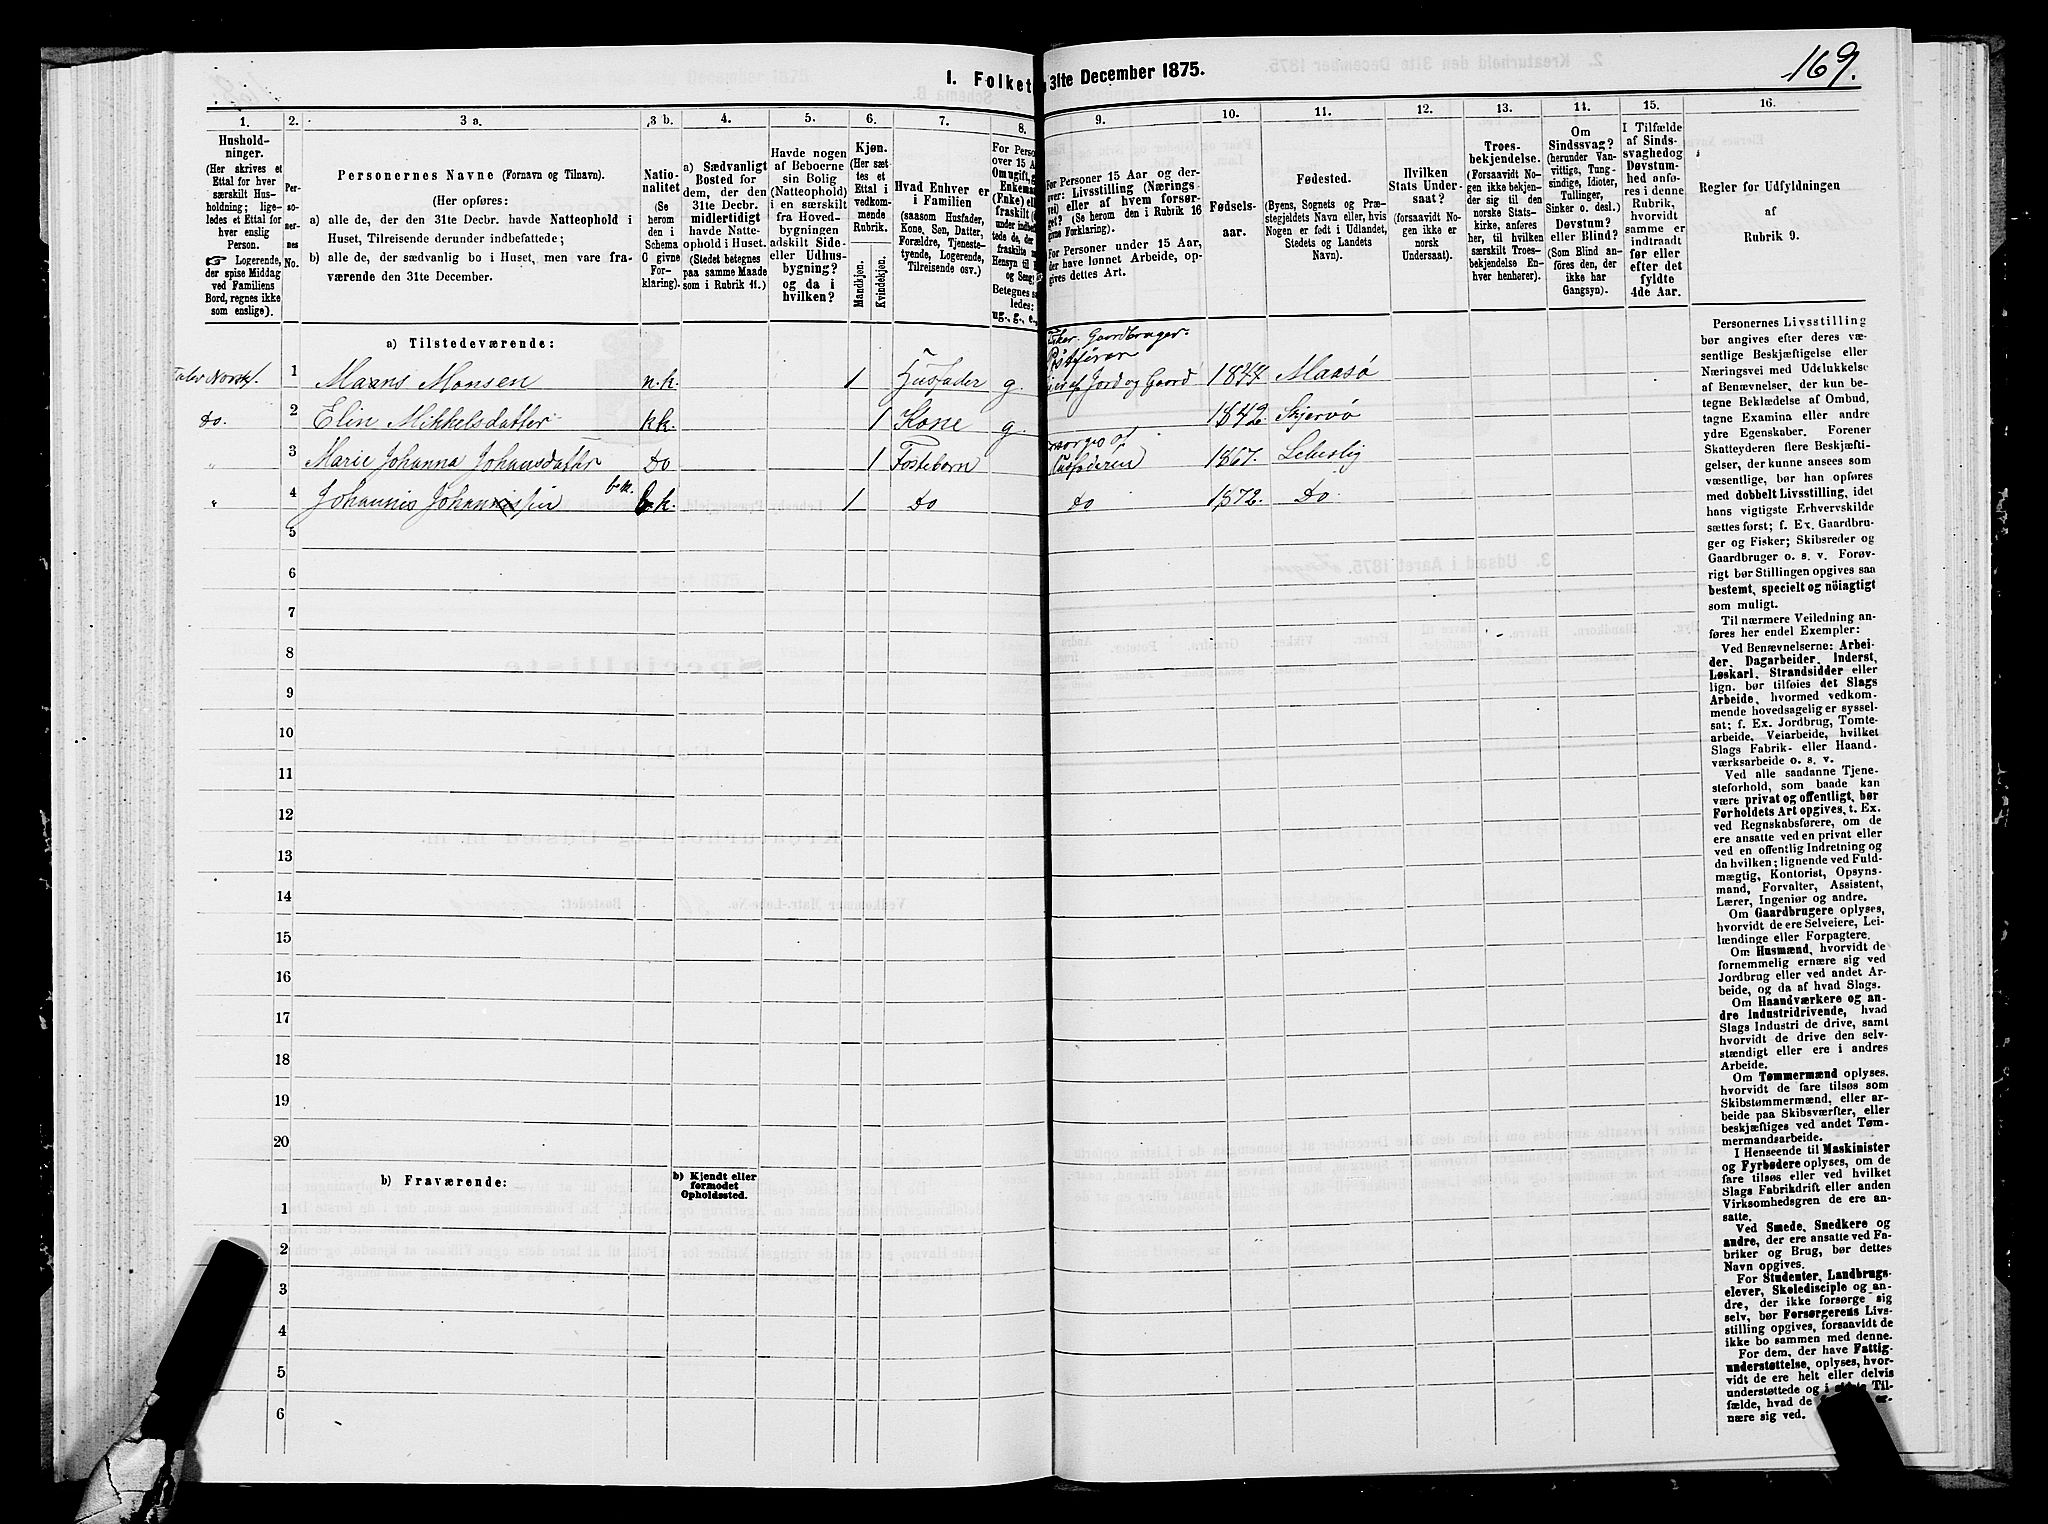 169.
I. Folket 31te December 1875.
1. 2. 3 a. 3 b. 4. 5. 6. 7. 8. 9. 10. 11. 12. 13. 14. 15. 16.
Hushold-
ninger.
(Her skrives et
Ettal for hver
særskilt Hus-
holdning; lige-
ledes et Ettal for
hver enslig
Person.
☞ Logerende,
der spise Middag
ved Familiens
Bord, regnes ikke
som enslige).
Per-
so-
ner-
nes
No.
Personernes Navne (Fornavn og Tilnavn).
(Her opføres:
a) alle de, der den 31te Decbr. havde Natteophold i
Huset, Tilreisende derunder indbefattede;
b) alle de, der sædvanlig bo i Huset, men vare fra-
værende den 31te December.
Natio-
nalitet
(Se
herom
den i
Schema
C givne
For-
klaring).
a) Sædvanligt
Bosted for
dem, der den
31te Decbr.
midlertidigt
havde Natte-
ophold i Huset.
(Stedet betegnes
paa samme Maade
som i Rubrik 11.)
Havde nogen
af Beboerne
sin Bolig
(Natteophold)
i en særskilt
fra Hoved-
bygningen
adskilt Side-
eller Udhus-
bygning?
og da i
hvilken?
Kjøn.
(Her sæt-
tes et
Ettal i
vedkom-
mende
Rubrik.
Mandkjøn.
Kvindekjøn.
Hvad Enhver er
i Familien
(saasom Husfader,
Kone, Søn, Datter,
Forældre, Tjeneste-
tyende, Logerende,
Tilreisende osv.)
For Person
over 15 A
Om ugift,
Enkema
(Enke) el
fraskilt
Betegnes
ledes:
ug., g., e.,
For Personer 15 Aar og der-
Livsstilling (Nærings-
eller af hvem forsør-
get? (Se herom den i Rubrik 16
givne Forklaring).
For Personer under 15 Aar,
der have lønnet Arbeide, op-
gives dettes Art.
Fødsels-
aar.
Fødested.
(Byens, Sognets og Præ-
stegjeldets Navn eller, hvis
Nogen er født i Udlandet,
Stedets og Landets
Navn).
Hvilken
Stats Under-
saat?
(forsaavidt No-
gen ikke er
norsk
Undersaat).
Troes-
bekjendelse.
(Forsaavidt No-
gen ikke bekjen-
der sig til den
norske Stats-
kirke, anføres
her, til hvilken
særskilt Troes-
bekjendelse En-
hver henhører).
Om
Sindssvag?
(herunder Van-
vittige, Tung-
sindige, Idioter,
Tullinger,
Sinker o. desl.)
Døvstum?
eller Blind?
(Som Blind an-
føres den, der
ikke har
Gangsyn).
I Tilfælde
af Sinds-
svaghed og
Døvstum-
hed anfø-
res i denne
Rubrik,
hvorvidt
samme er
indtraadt
før eller
efter det
fyldte
4de Aar.
Regler for Udfyldningen
af
Rubrik 9.
a) Tilstedeværende:
Taler Norsk. 1 Maans Monsen n.k. 1 Husfader g. Gaardbruger. Jord og Gaard 1844 Maasø
Do. 2 Elin Mikkelsdatter kk. 1 Kone g. 1842. Skjervø
" 3 Marie Johanna Johansdatter Do 1 Fostebarn 1867. Lebesby
" 4 Johannis b.k. 1 Do Do 1872. Do
5
6
7
8
9
10
11
12
13
14
15
16
17
18
19
20
b) Fraværende: b) Kjendt eller
formodet
Opholdssted.
1
2
3
4
5
6
Personernes Livsstilling
bør angives efter deres væ-
sentlige Beskjæftigelse eller
Næringsvei med Udelukkelse
af Benævnelser, der kun be-
tegne Beklædelse af Ombud,
tagne Examina eller andre
ydre Egenskaber. Forener
Skatteyderen flere Beskjæfti-
gelser, der kunne ansees som
væsentlige, bør han opføres
med dobbelt Livsstilling, idet
hans vigtigste Erhvervskilde
sættes først; f. Ex. Gaardbru-
ger og Fisker; Skibsreder og
Gaardbruger o. s. v. Forøv-
rigt bør Stillingen opgives saa
bestemt, specielt og nöiagtigt
som muligt.
Til nærmere Veiledning an-
føres her endel Exempler:
Ved Benævnelserne: Arbei-
der, Dagarbeider, Inderst,
Løskarl, Strandsidder eller
lign. bør tilføies det Slags
Arbeide, hvormed vedkom-
mende hovedsagelig er syssel-
sat; f. Ex. Jordbrug, Tomte-
arbeide, Veiarbeide, hvilket
Slags Fabrik- eller Haand-
værksarbeide o. s. v.
Ved alle saadanne Tjene-
steforhold, som baade kan
være privat og offentligt, bør
Forholdets Art opgives, t. Ex.
ved Regnskabsførere, om de
ere ansatte ved en privat eller
ved en offentlig Indretning og
da hvilken; lignende ved Fuld-
mægtig, Kontorist, Opsyns-
mand, Forvalter, Assistent,
Lærer, Ingeniør og andre.
Om Gaardbrugere oplyses,
hvorvidt de ere Selveiere, Lei-
lændinge eller Forpagtere.
Om Husmænd, hvorvidt de
fornemmelig ernære sig ved
Jordbrug eller ved andet Ar-
beide, og da af hvad Slags.
Om Haandværkere og an-
dre Industridrivende, hvad
Slags Industri de drive, samt
hvorvidt de drive den selv-
stændigt eller ere i andres
Arbeide.
Om Tømmermænd oplyses,
hvorvidt de fare tilsøs som
Skibstømmermænd, eller ar-
beide paa Skibsværfter, eller
beskjæftiges ved andet Tøm-
mermandsarbeide.
I Henseende til Maskinister
og Fyrbødere oplyses, om de
fare tilsøs eller ved hvilket
Slags Fabrikdrift eller anden
Virksomhedsgren de ere an-
satte.
Ved Smede, Snedkere og
andre, der ere ansatte ved Fa-
briker og Brug, bør dettes
Navn opgives.
For Studenter, Landbrugs-
elever, Skoledisciple og an-
dre, der ikke forsørge sig
selv, bør Forsørgerens Livs-
stilling opgives, forsaavidt de
ikke bo sammen med denne.
For dem, der have Fattig-
understøttelse, oplyses, hvor-
vidt de ere helt eller delvis
understøttede og i Til-
fælde, hvad de er-
nære sig ved.